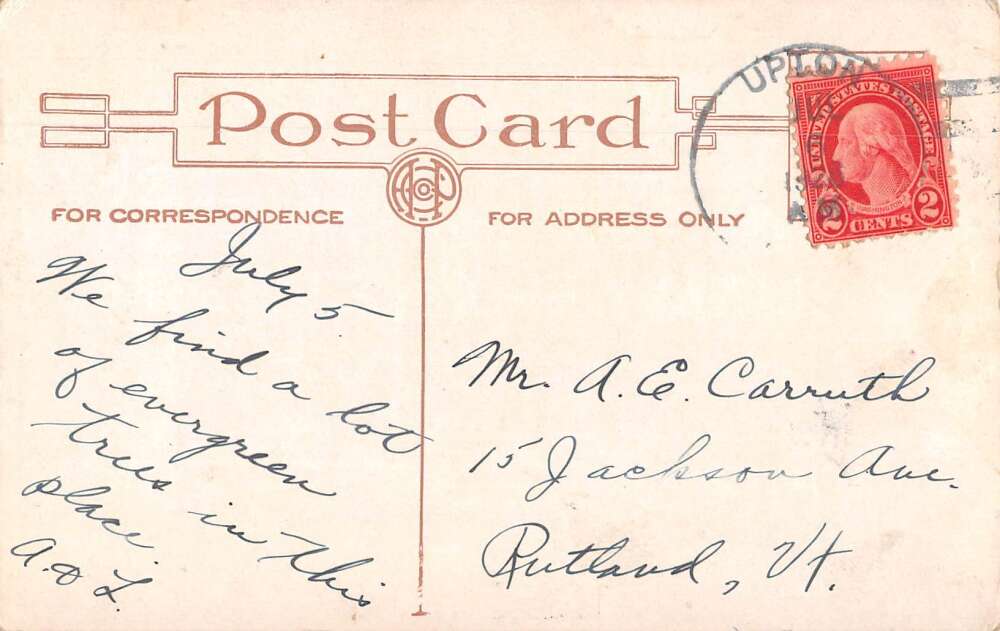 Post Card
FOR CORRESPONDENCE
FOR ADDRESS ONLY
UPTON
UNITED STATES POSTAGE
WASHINGTON
2 CENTS 2
July 5
We find a lot
of evergreen
trees in this
place
A. & L.
Mr. A. E. Carruth
15 Jackson Ave.
Rutland, Vt.